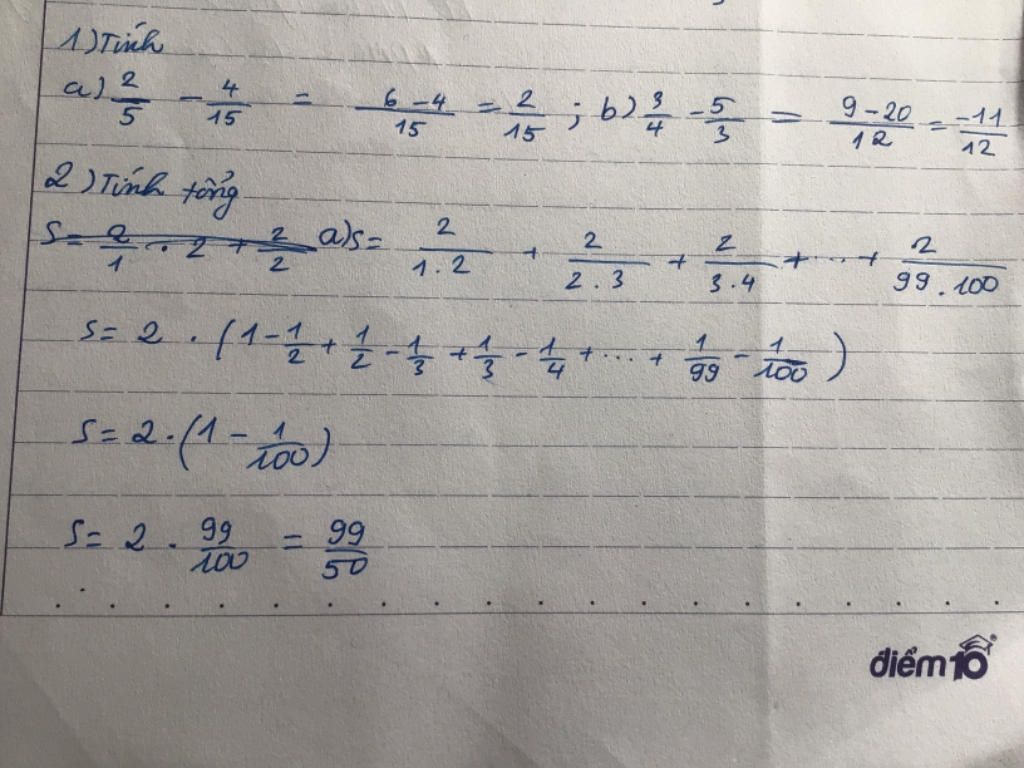 1) Tính
a) 2/5 - 4/15 = (6-4)/15 = 2/15 ; b) 3/4 - 5/3 = (9-20)/12 = -11/12
2) Tính tổng
a) S = 2/(1.2) + 2/(2.3) + 2/(3.4) + ... + 2/(99.100)
S = 2 . (1 - 1/2 + 1/2 - 1/3 + 1/3 - 1/4 + ... + 1/99 - 1/100)
S = 2 . (1 - 1/100)
S = 2 . 99/100 = 99/50
điểm10